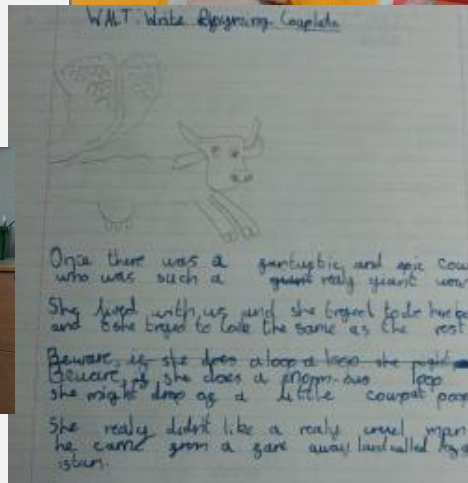 WALT: Write Rhyming Couplets
Once there was a and epic cow
who was such a realy giant
She lived with us and she tryed to do her
and she tryed to look the same as the rest
Beware, if she does a loop a loop she might
Beware, if she does a loop
she might drop of a little cowpat poop
She realy didn't like a realy cruel man
he came from a fare away land called
istan.